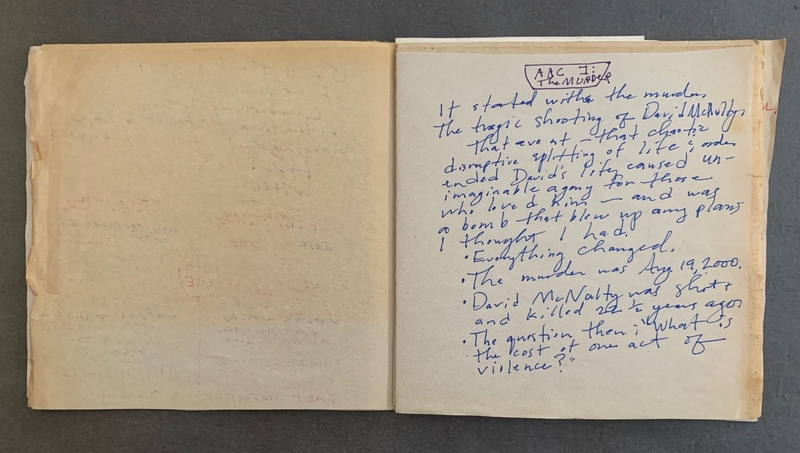 AAC I:
The MURDER
It started with the murder,
The tragic shooting of David McNulty,
That event – that chaotic
disruptive splitting of life & order
ended David's life, caused un-
imaginable agony for those
who loved him – and was
a bomb that blew up any plans
I thought I had.
• Everything changed.
• The murder was Aug 19, 2000.
• David McNulty was shot
and killed 22 ½ years ago.
• The question then: "What is
the cost of one act of
violence?"